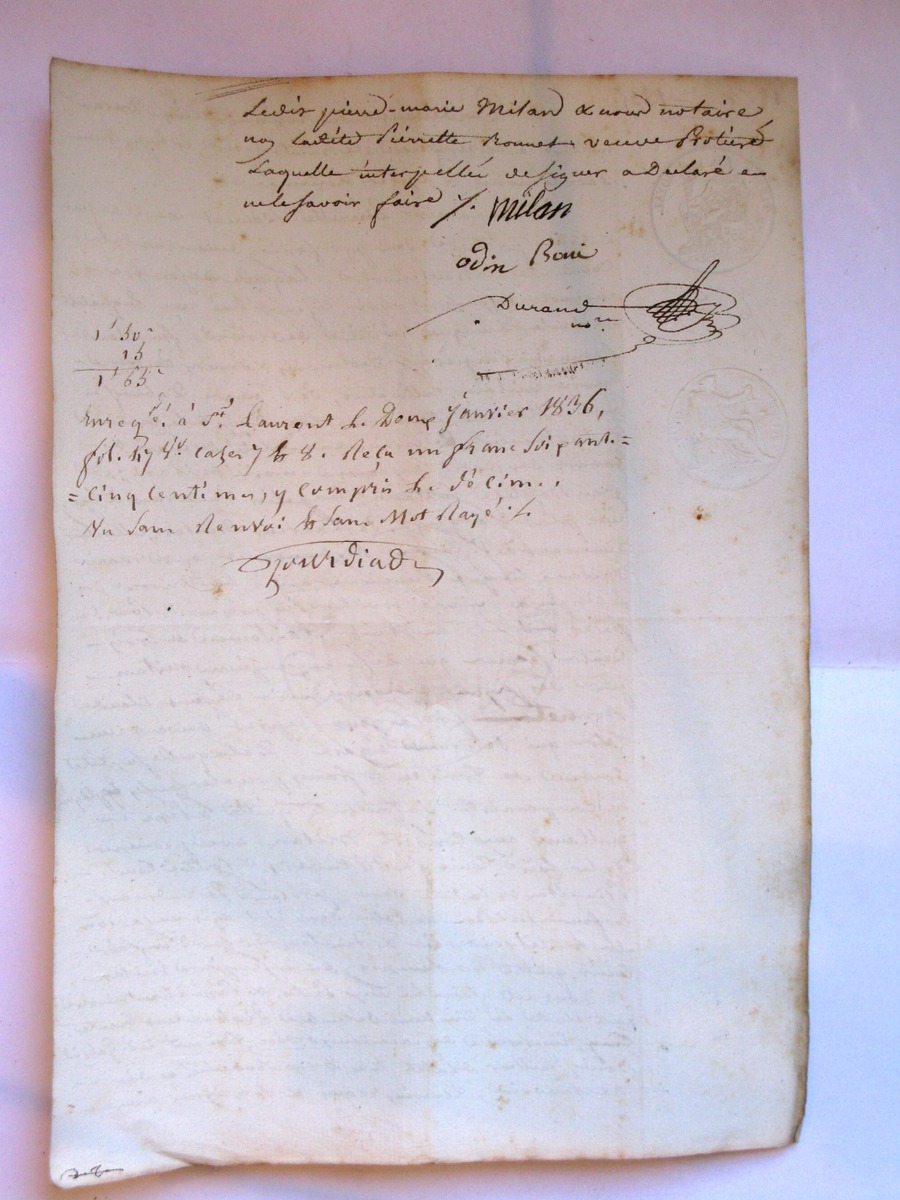 Ledit pierre-marie Milan & nous notaire
non Ladite Pierrette Ronnet veuve Protière
Laquelle interpellée de signer a Declaré
ne le savoir faire ./.
Milan
odin Boui
Durand
nore
1f 50c
15
1f 65c
Enregtré. à St. Laurent le Douze Janvier 1836,
fol. 178 vo. cazes 7 & 8. Reçu un franc Soixante=
=Cinq Centimes, y compris le décime.
Vu Sans Renvoi & Sans Mot Rayé ./.